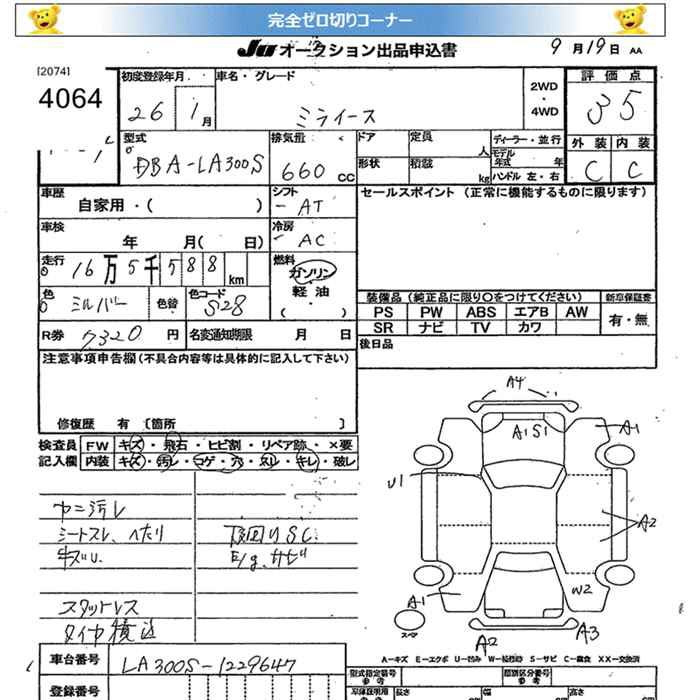 完全ゼロ切りコーナー
JU オークション出品申込書 9月19日 AA
[2074]
4064
初度登録年月 車名・グレード 2WD ・ 4WD 評価点
26 1月 ミライース 35
型式 排気量 ドア 定員 人 ディーラー・並行 外装 内装
DBA-LA300S 660 CC 形状 積載 kg モデル年式 年 ハンドル 左・右 C C
車歴 自家用・( ) シフト AT セールスポイント (正常に機能するものに限ります)
車検 年 月( 日) 冷房 AC
走行 16万5千588km 燃料 ガソリン・軽油・( )
色 シルバー 色替 色コード S28
装備品 (純正品に限り〇をつけてください) 新車保証書
PS PW ABS エアB AW 有・無
SR ナビ TV カワ
R券 7320円 名変通知期限 月 日 後日品
注意事項申告欄 (不具合内容等は具体的に記入して下さい)
修復歴 有 [箇所 ]
検査員 FW キズ・飛石・ヒビ割・リペア跡・×要
記入欄 内装 キズ・汚レ・コゲ・穴・スレ・キレ・破レ
ヤニ汚レ
シートスレ、ヘタリ 下回りSC
キズU. E/g.サビ
スタットレス
タイヤ積込
A4
A1S1 A1
U1
A2
W2
A1
スペア
A2 A3
A-キズ E-エクボ U-凹み W-補修跡 S-サビ C-腐食 XX-交換済
車台番号 LA300S-1229647
型式指定番号 参考 類別区分番号 参考
登録番号 長さ 幅 高さ